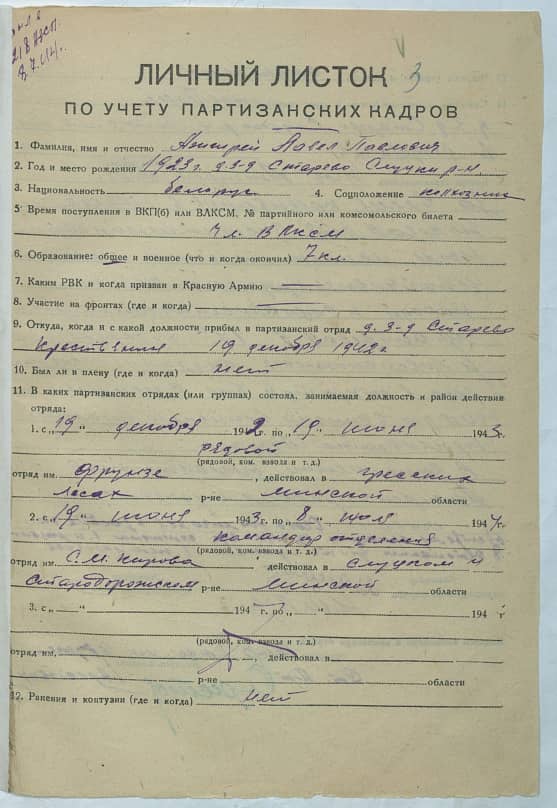 218 НСП
8.7.44.
3
ЛИЧНЫЙ ЛИСТОК
ПО УЧЕТУ ПАРТИЗАНСКИХ КАДРОВ
1. Фамилия, имя и отчество Павел Павлович
2. Год и место рождения 1923 г. д. 3-д Старево Слуцкий р-н.
3. Национальность белорус 4. Соцположение колхозник
5. Время поступления в ВКП(б) или ВЛКСМ, № партийного или комсомольского билета
чл. ВЛКСМ
6. Образование: общее и военное (что и когда окончил) 7 кл.
7. Каким РВК и когда призван в Красную Армию —
8. Участие на фронтах (где и когда) —
9. Откуда, когда и с какой должности прибыл в партизанский отряд д. 3-д Старево
19 декабря 1942 г.
10. Был ли в плену (где и когда) нет
11. В каких партизанских отрядах (или группах) состоял, занимаемая должность и район действия
отряда:
1. с „19“ декабря 1942 г. по „19“ июня 1943 г.
рядовой
(рядовой, ком. взвода и т. д.)
отряд им. Фрунзе, действовал в гресских
лесах р-не минской области
2. с „19“ июня 1943 г. по „8“ июля 1944 г.
командир отделения
(рядовой, ком. взвода и т. д.)
отряд им. С.М. Кирова действовал в слуцком и
Стародорожском р-не минской области
3. с „ “ 194 г. по „ “ 194 г.
(рядовой, ком. взвода и т. д.)
отряд им. , действовал в
р-не области
12. Ранения и контузии (где и когда) нет